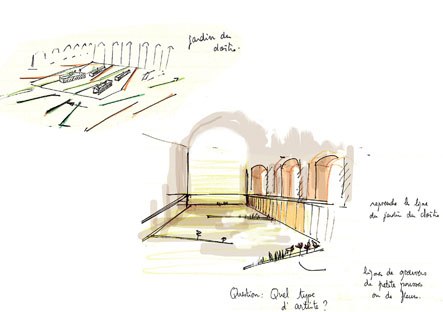 jardin du
cloître.
reprendre la ligne
du jardin du cloître
ligne de
de petite pousses
ou de fleurs.
Question: Quel type
d'artiste?